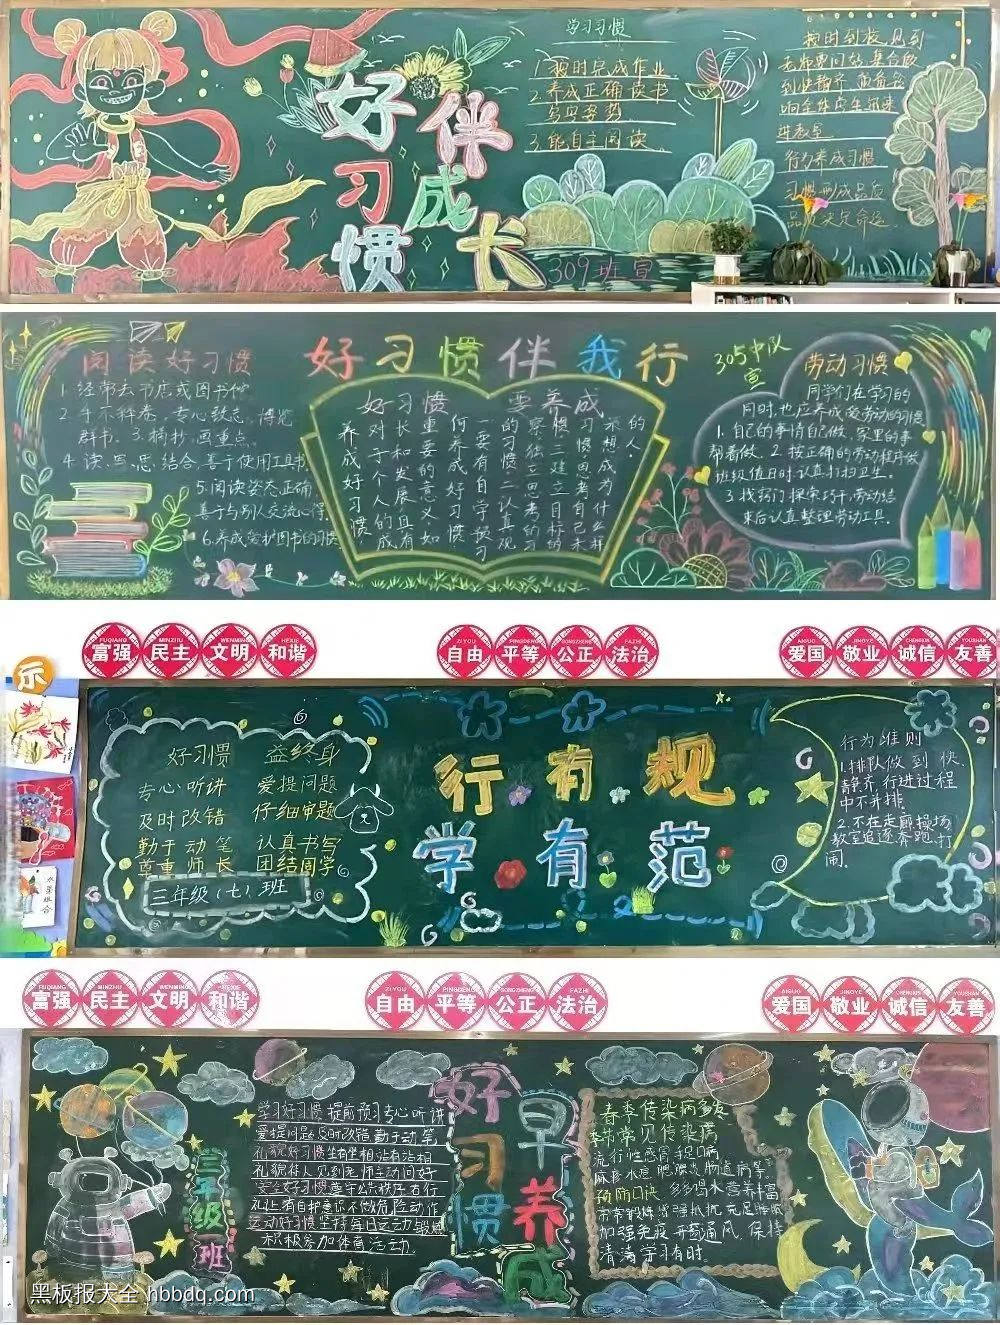 好习惯
伴成长
学习习惯
1.按时完成作业
2.养成正确读书
写字姿势
3.能自主阅读
按时到校,见到
老师要问好,集合做
到快静齐
行为养成习惯
习惯形成品质
品质决定命运
309班宣
好习惯伴我行
305中队
宣
阅读好习惯
1.经常去书店或图书馆
2.手不释卷,专心致志,博览
群书。3.摘抄,画重点。
4.读、写、思、结合,善于使用工具书
5.阅读姿态正确,
善于与别人交流心得。
6.养成爱护图书的习惯
好习惯 要养成
养成好习惯
对于个人的成
长和发展具有
重要的意义。如
何养成好习惯
一要有自学预习
的习惯 二认真观
察独立思考的习
惯 三建立目标的
习惯,思考自己未
来想成为什么样
的人。
劳动习惯
同学们在学习的
同时,也应养成爱劳动的习惯
1.自己的事情自己做,家里的事
帮着做。2.按正确的劳动程序做
班级值日时,认真打扫卫生。
3.找窍门探索巧干,劳动结
束后认真整理劳动工具。
FUQIANG MINZHU WENMING HEXIE
富强 民主 文明 和谐
ZIYOU PINGDENG GONGZHENG FAZHI
自由 平等 公正 法治
AIGUO JINGYE CHENGXIN YOUSHAN
爱国 敬业 诚信 友善
示
好习惯 益终身
专心听讲 爱提问题
及时改错 仔细审题
勤于动笔 认真书写
尊重师长 团结同学
三年级(七)班
行有规
学有范
行为准则
1.排队做到快、
静齐,行进过程
中不并排。
2.不在走廊操场
教室追逐奔跑、打
闹。
FUQIANG MINZHU WENMING HEXIE
富强 民主 文明 和谐
ZIYOU PINGDENG GONGZHENG FAZHI
自由 平等 公正 法治
AIGUO JINGYE CHENGXIN YOUSHAN
爱国 敬业 诚信 友善
三年级一班
学习好习惯 提前预习专心听讲
爱提问题及时改错勤于动笔
礼貌好习惯 坐有坐相 站有站相
礼貌待人见到老师主动问好
安全好习惯 遵守公共秩序右行
礼让有自护意识不做危险动作
运动好习惯 坚持每日运动与锻炼
积极参加体育活动
好习惯
早养成
春季传染病多发
春季常见传染病
流行性感冒手足口病
麻疹水痘腮腺炎肠道病等。
预防口诀 多多喝水营养丰富
常常锻炼增强抵抗充足睡眠
加强免疫 开窗通风,保持
清洁学习有时。
黑板报大全 hbbdq.com